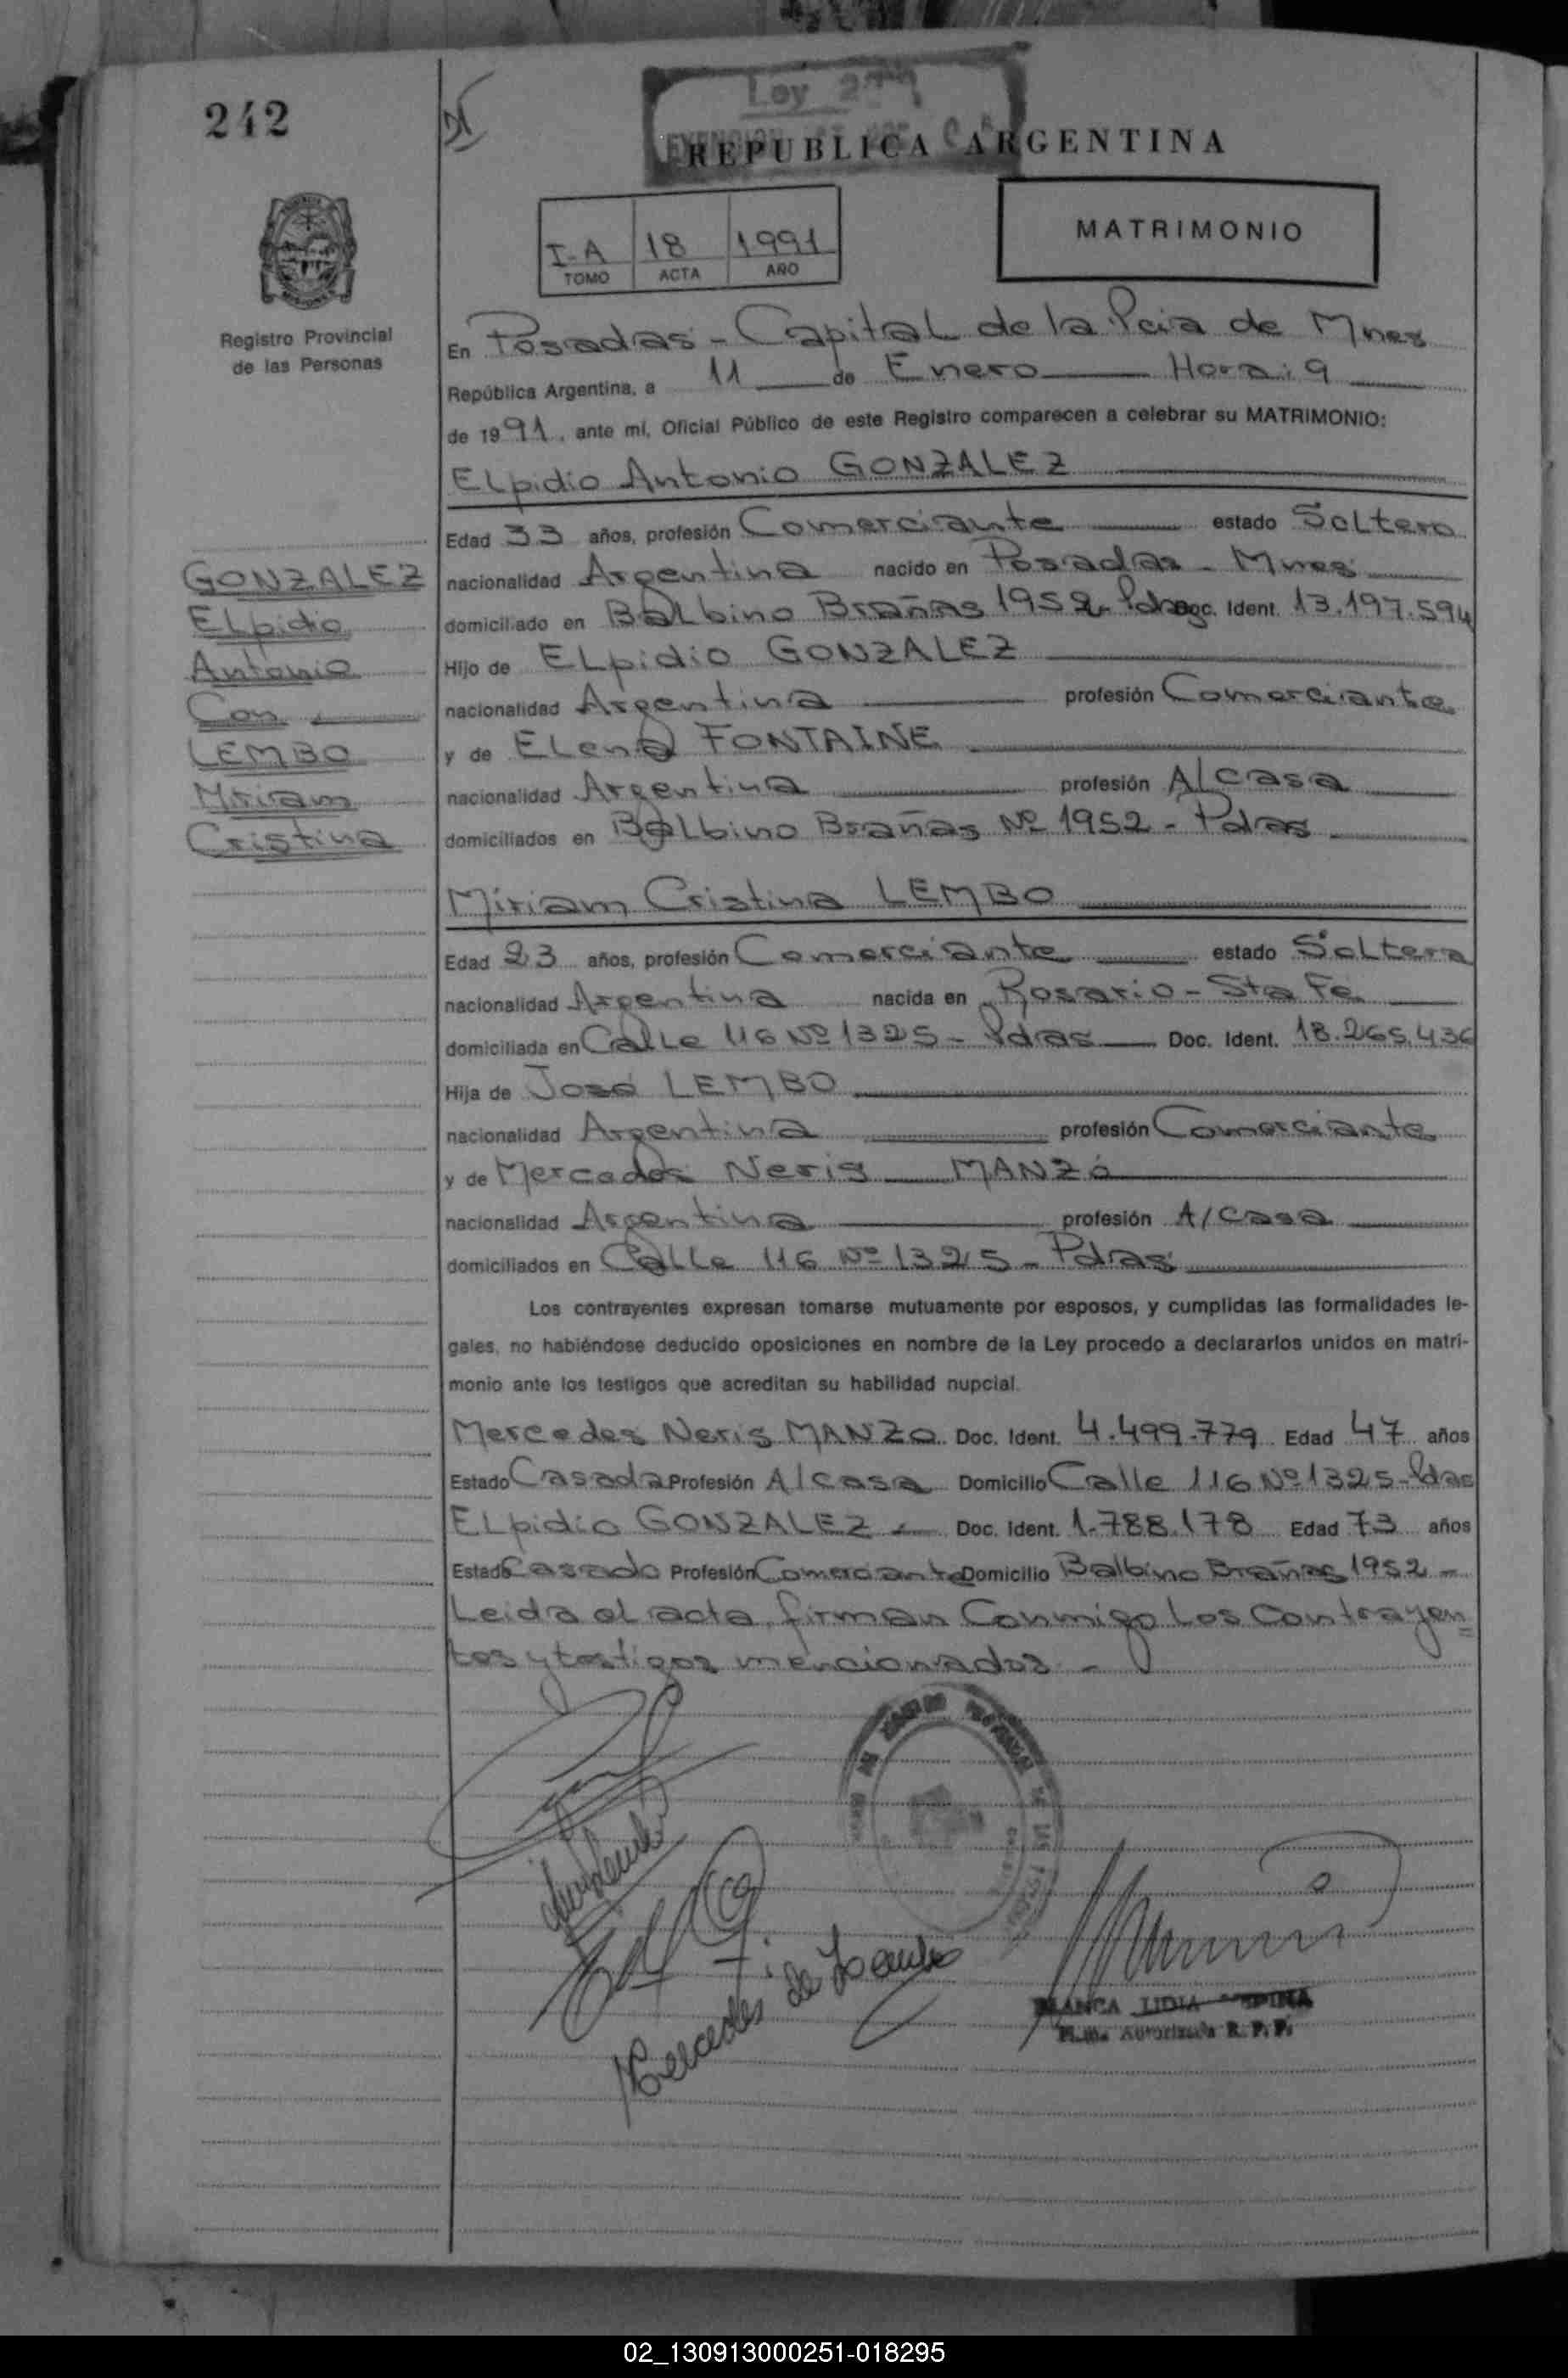 242
Ley
REPUBLICA ARGENTINA
MATRIMONIO
I-A 18 1991
TOMO ACTA AÑO
Registro Provincial
de las Personas
En Posadas - Capital de la Pcia de Mnes
República Argentina, a 11 de Enero Hora: 9
de 1991, ante mí, Oficial Público de este Registro comparecen a celebrar su MATRIMONIO:
Elpidio Antonio GONZALEZ
Edad 33 años, profesión Comerciante estado Soltero
nacionalidad Argentina nacido en Posadas - Mnes
domiciliado en Balbino Brañas 1952 - Pdas Doc. Ident. 13.197.594
Hijo de Elpidio GONZALEZ
nacionalidad Argentina profesión Comerciante
y de Elena FONTAINE
nacionalidad Argentina profesión A/casa
domiciliados en Balbino Brañas Nº 1952 - Pdas
GONZALEZ
Elpidio
Antonio
Con
LEMBO
Miriam
Cristina
Miriam Cristina LEMBO
Edad 23 años, profesión Comerciante estado Soltera
nacionalidad Argentina nacida en Rosario - Sta Fe
domiciliada en Calle 116 Nº 1325 - Pdas Doc. Ident. 18.265.436
Hija de José LEMBO
nacionalidad Argentina profesión Comerciante
y de Mercedes Neris MANZO
nacionalidad Argentina profesión A/casa
domiciliados en Calle 116 Nº 1325 - Pdas
Los contrayentes expresan tomarse mutuamente por esposos, y cumplidas las formalidades le-
gales, no habiéndose deducido oposiciones en nombre de la Ley procedo a declararlos unidos en matri-
monio ante los testigos que acreditan su habilidad nupcial.
Mercedes Neris MANZO Doc. Ident. 4.499.779 Edad 47 años
Estado Casada Profesión A/casa Domicilio Calle 116 Nº 1325 - Pdas
Elpidio GONZALEZ - Doc. Ident. 1.788.178 Edad 73 años
Estado Casado Profesión Comerciante Domicilio Balbino Brañas 1952 -
Leida el acta, firman Conmigo Los Contrayen=
tes y testigos mencionados -
Mercedes de Lembo
BLANCA LIDIA
Autorizada R. P. P.
02_130913000251-018295